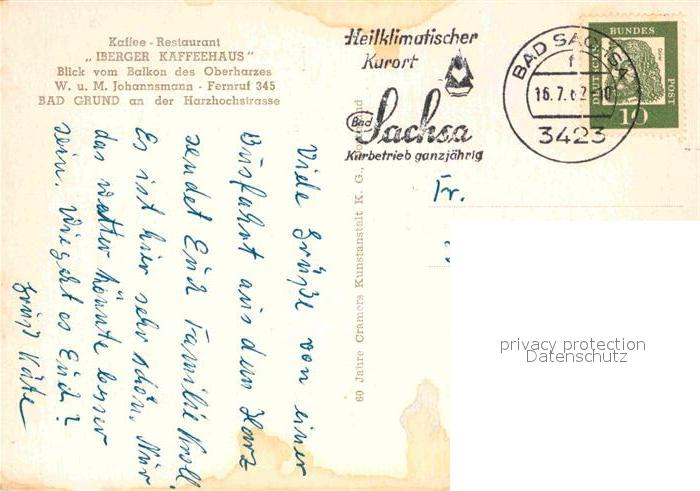 Kaffee - Restaurant
„IBERGER KAFFEEHAUS"
Blick vom Balkon des Oberharzes
W. u. M. Johannsmann - Fernruf 345
BAD GRUND an der Harzhochstrasse
Heilklimatischer
Kurort
Bad Sachsa
Kurbetrieb ganzjährig
BAD SACHSA
f
16.7.62
3423
DEUTSCHE
BUNDES
POST
10
60 Jahre Cramers Kunstanstalt K. G., Dortmund
Fr.
Viele Grüße von einer
Busfahrt aus dem Harz
sendet Euch Familie Kroll.
Es ist hier sehr schön. Nur
das Wetter könnte besser
sein. Wie geht es Euch?
Gruß Käte
privacy protection
Datenschutz